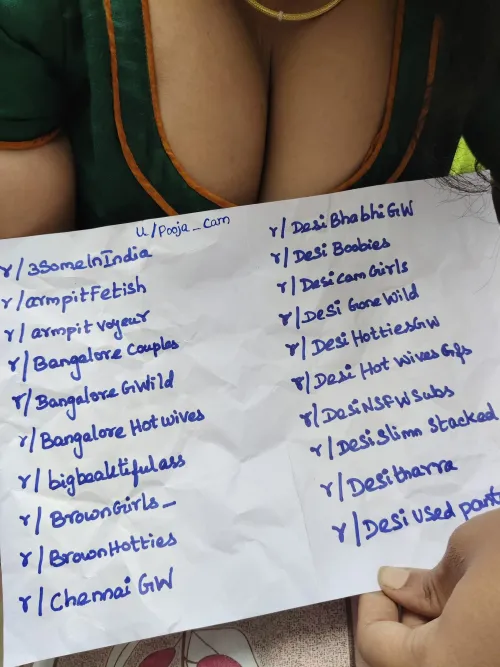 u/Pooja_cam
r/3SomeInIndia
r/armpitFetish
r/armpit voyeur
r/Bangalore Couples
r/Bangalore GWild
r/Bangalore Hotwives
r/bigbeaktifulass
r/BrownGirls_
r/BrownHotties
r/Chennai GW
r/Desi Bhabhi GW
r/Desi Boobies
r/Desi cam Girls
r/Desi Gone Wild
r/Desi HottiesGW
r/Desi Hot Wives Gifs
r/DesiNSFWSubs
r/Desi Slim Stacked
r/Desitharra
r/Desi used pant